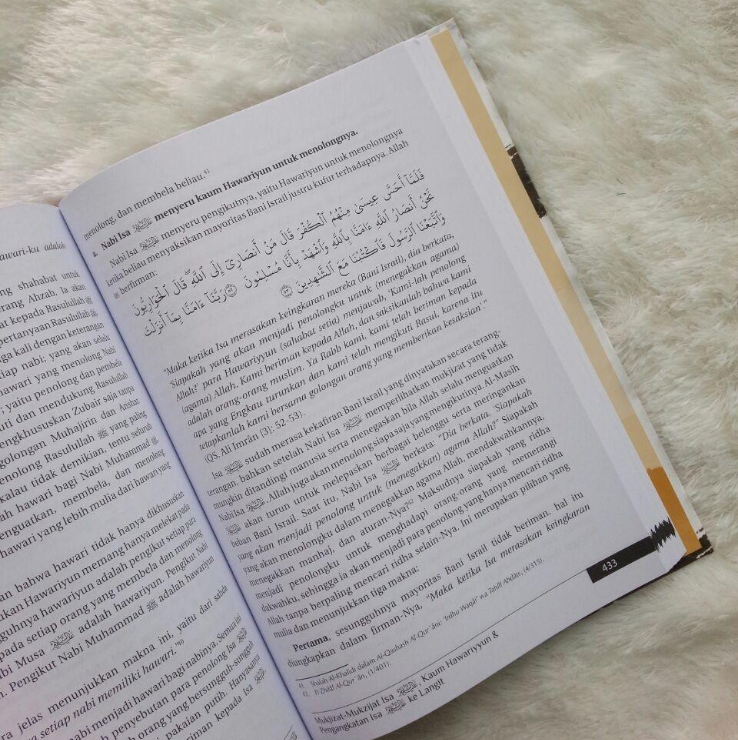 awari-ku adalah
ng shahabat untuk
erang Ahzab. Ia akan
at kepada Rasulullah ﷺ
pertanyaan Rasulullah ﷺ
ga kali dengan keterangan
tiap nabi; yang akan selalu
awari yang menolong Nabi
, yaitu penolong dan pembela
uti dan mendukung Rasulullah
engkhususkan Zubair saja tanpa
golongan Muhajirin dan Anshar
enolong Rasulullah ﷺ yang paling
kalau tidak demikian, tentu seluruh
ah hawari bagi Nabi Muhammad ﷺ,
enguatkan, membela, dan menolong
hawari yang lebih mulia dari hawari yang
an bahwa hawari tidak hanya dikhususkan
ikan Hawariyun memang hanya melekat pada
guhnya hawariyun adalah pengikut setiap para
pada setiap orang yang membela dan menolong
bi Musa adalah hawariyun. Pengikut Nabi
n. Pengikut Nabi Muhammad ﷺ adalah hawariyun
a jelas menunjukkan makna ini, yaitu dan sabda
ya setiap nabi memiliki hawari."
abi menjadi hawari bagi nabinya. Semua ini
h penyebutan para penolong Isa
orang yang bersungguh-sungguh
pakaian putih. Hanyasanya
iriman kepada Isa
menolong, dan membela beliau.
4. Nabi Isa menyeru kaum Hawariyun untuk menolongnya.
Nabi Isa menyeru pengikutnya, yaitu Hawariyun untuk menolongnya
ketika beliau menyaksikan mayoritas Bani Israil justru kufur terhadapnya. Allah
berfirman:
فَلَمَّا أَحَسَّ عِيسَىٰ مِنْهُمُ الْكُفْرَ قَالَ مَنْ أَنصَارِي إِلَى اللَّهِ قَالَ الْحَوَارِيُّونَ
نَحْنُ أَنصَارُ اللَّهِ ءَامَنَّا بِاللَّهِ وَاشْهَدْ بِأَنَّا مُسْلِمُونَ ٥٢ رَبَّنَا ءَامَنَّا بِمَا أَنزَلْتَ
وَاتَّبَعْنَا الرَّسُولَ فَاكْتُبْنَا مَعَ الشَّاهِدِينَ ٥٣
"Maka ketika Isa merasakan keingkaran mereka (Bani Israil), dia berkata,
'Siapakah yang akan menjadi penolongku untuk (menegakkan agama)
Allah?' para Hawariyyun (sahabat setia) menjawab, 'Kami-lah penolong
(agama) Allah. Kami beriman kepada Allah, dan saksikanlah bahwa kami
adalah orang-orang muslim. Ya Rabb kami, kami telah beriman kepada
apa yang Engkau turunkan dan kami telah mengikuti Rasul, karena itu
tetapkanlah kami bersama golongan orang yang memberikan kesaksian.'"
(QS. Ali Imrân (3): 52-53).
Isa sudah merasa kekafiran Bani Israil yang dinyatakan secara terang-
terangan, bahkan setelah Nabi Isa memperlihatkan mukjizat yang tidak
mungkin ditandingi manusia serta menegaskan bila Allah selalu menguatkan
Nabi Isa Allah juga akan menolong siapa saja yang mengikutinya. Al-Masih
akan turun untuk melepaskan berbagai belenggu serta meringankan
beban Bani Israil. Saat itu, Nabi Isa berkata: "Dia berkata, 'Siapakah
yang akan menjadi penolong untuk (menegakkan) agama Allah?'" Siapakah
yang akan menolongku dalam menegakkan agama Allah, mendakwahkannya,
menegakkan manhaj, dan aturan-Nya? Maksudnya siapakah yang ridha
menjadi penolongku untuk menghadapi orang-orang yang memerangi
dakwahku, sehingga ia akan menjadi para penolong yang hanya mencari ridha
Allah tanpa berpaling mencari ridha selain-Nya. Ini merupakan pilihan yang
mulia dan menunjukkan tiga makna:
Pertama, sesungguhnya mayoritas Bani Israil tidak beriman, hal itu
diungkapkan dalam firman-Nya, "Maka ketika Isa merasakan keingkaran
Mukjizat-Mukzijat Isa, Kaum Hawariyyun &
Pengangkatan Isa ke Langit
433